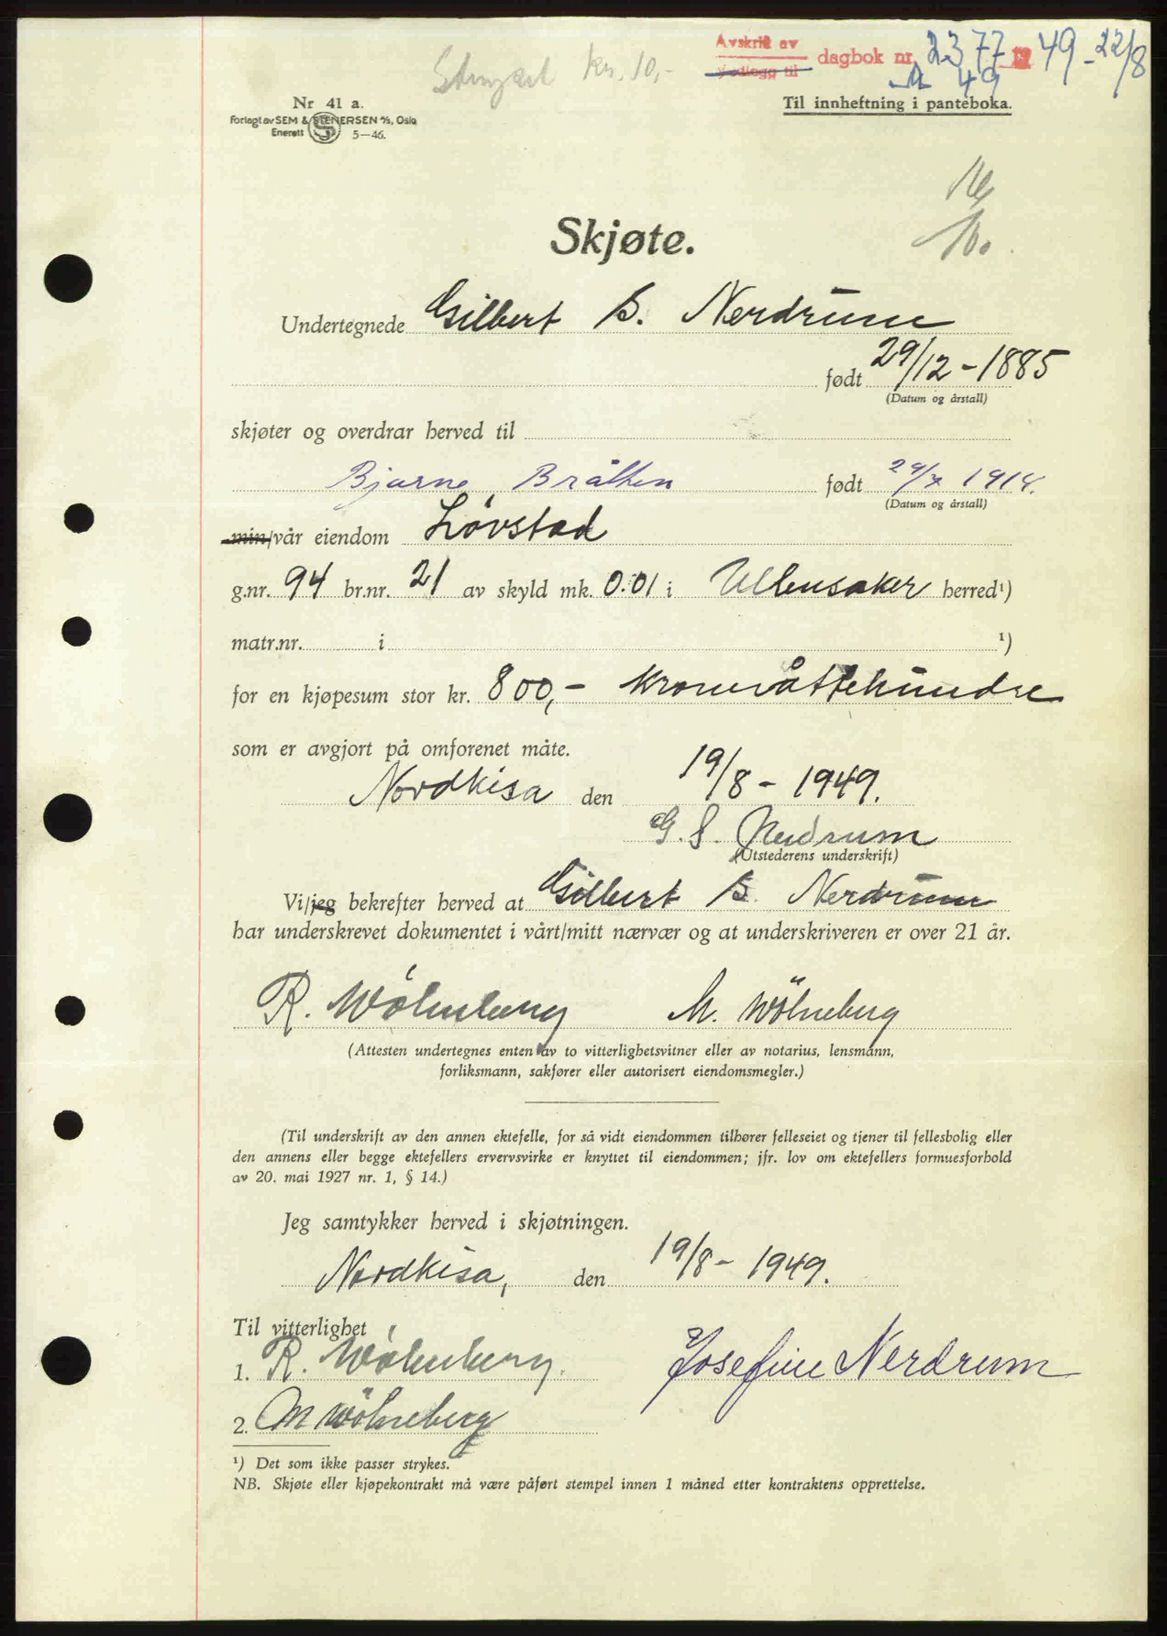 Stempel kr. 10,-
Avskrift av
vedlegg til
dagbok nr. 2377 19 49 - 22/8
49
Nr 41 a.
Forlagt av SEM & STENERSEN A/S, Oslo
Enerett S 5-46.
Til innheftning i panteboka.
10.
Skjøte.
Undertegnede Gilbert S. Nerdrum
født 29/12 - 1885
(Datum og årstall)
skjøter og overdrar herved til
Bjarne Bråthen født 29/7 1914.
(Datum og årstall)
min/vår eiendom Løvstad
g.nr. 94 br.nr. 21 av skyld mk. 0.01 i Ullensaker herred¹)
matr.nr. i ¹)
for en kjøpesum stor kr. 800,- kroneråttehundre
som er avgjort på omforenet måte.
Nordkisa den 19/8 - 1949.
G. S. Nerdrum
(Utstederens underskrift)
Vi/jeg bekrefter herved at Gilbert S. Nerdrum
har underskrevet dokumentet i vårt/mitt nærvær og at underskriveren er over 21 år.
R. Wölneberg M. Wölneberg
(Attesten undertegnes enten av to vitterlighetsvitner eller av notarius, lensmann,
forliksmann, sakfører eller autorisert eiendomsmegler.)
(Til underskrift av den annen ektefelle, for så vidt eiendommen tilhører felleseiet og tjener til fellesbolig eller
den annens eller begge ektefellers ervervsvirke er knyttet til eiendommen; jfr. lov om ektefellers formuesforhold
av 20. mai 1927 nr. 1, § 14.)
Jeg samtykker herved i skjøtningen.
Nordkisa, den 19/8 - 1949.
Til vitterlighet
1. R. Wölneberg.
Josefine Nerdrum
2. M Wölneberg
¹) Det som ikke passer strykes.
NB. Skjøte eller kjøpekontrakt må være påført stempel innen 1 måned etter kontraktens opprettelse.